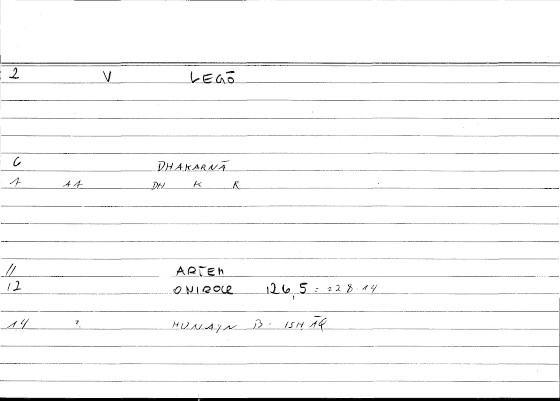 2 V LEGŌ
6 DHAKARNĀ
1 AA DH K R
11 ARTEM
12 ONIROCR 126,5 = 228.14
14 ? HUNAYN B. ISHĀQ